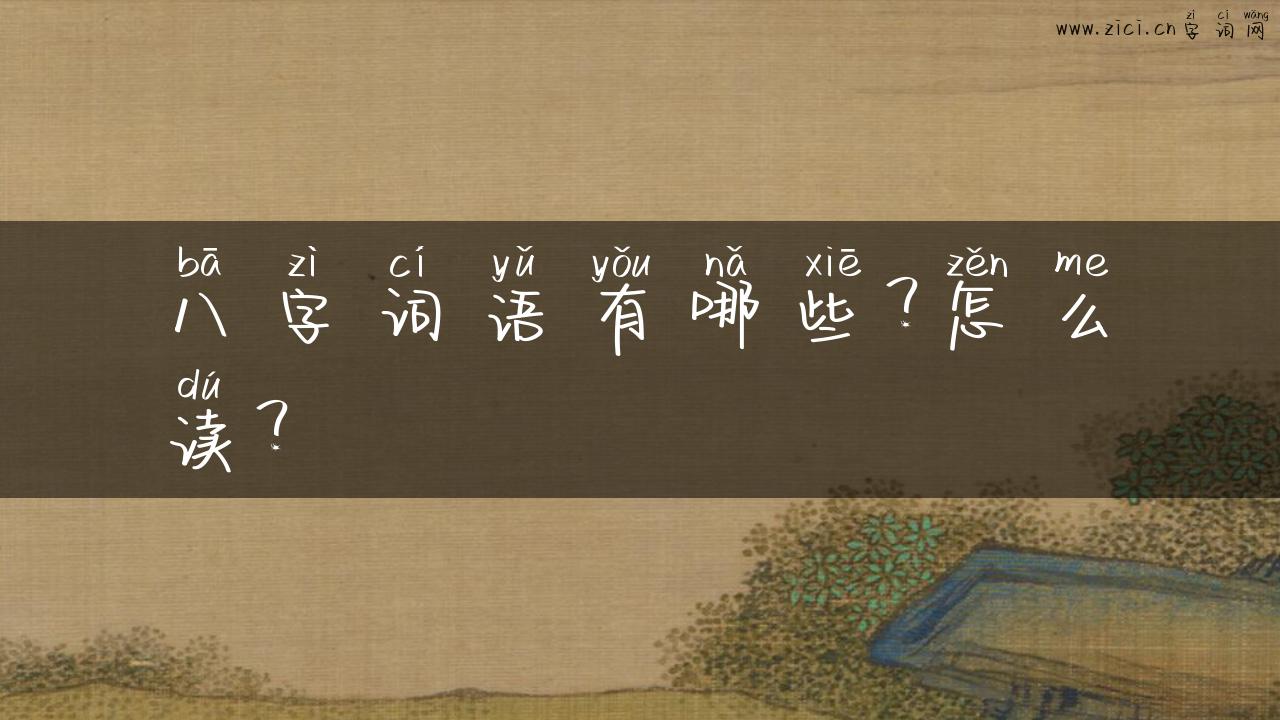 zì cí wǎng
www.zici.cn字词网
bā zì cí yǔ yǒu nǎ xiē zěn me
八字词语有哪些?怎么
dú
读?